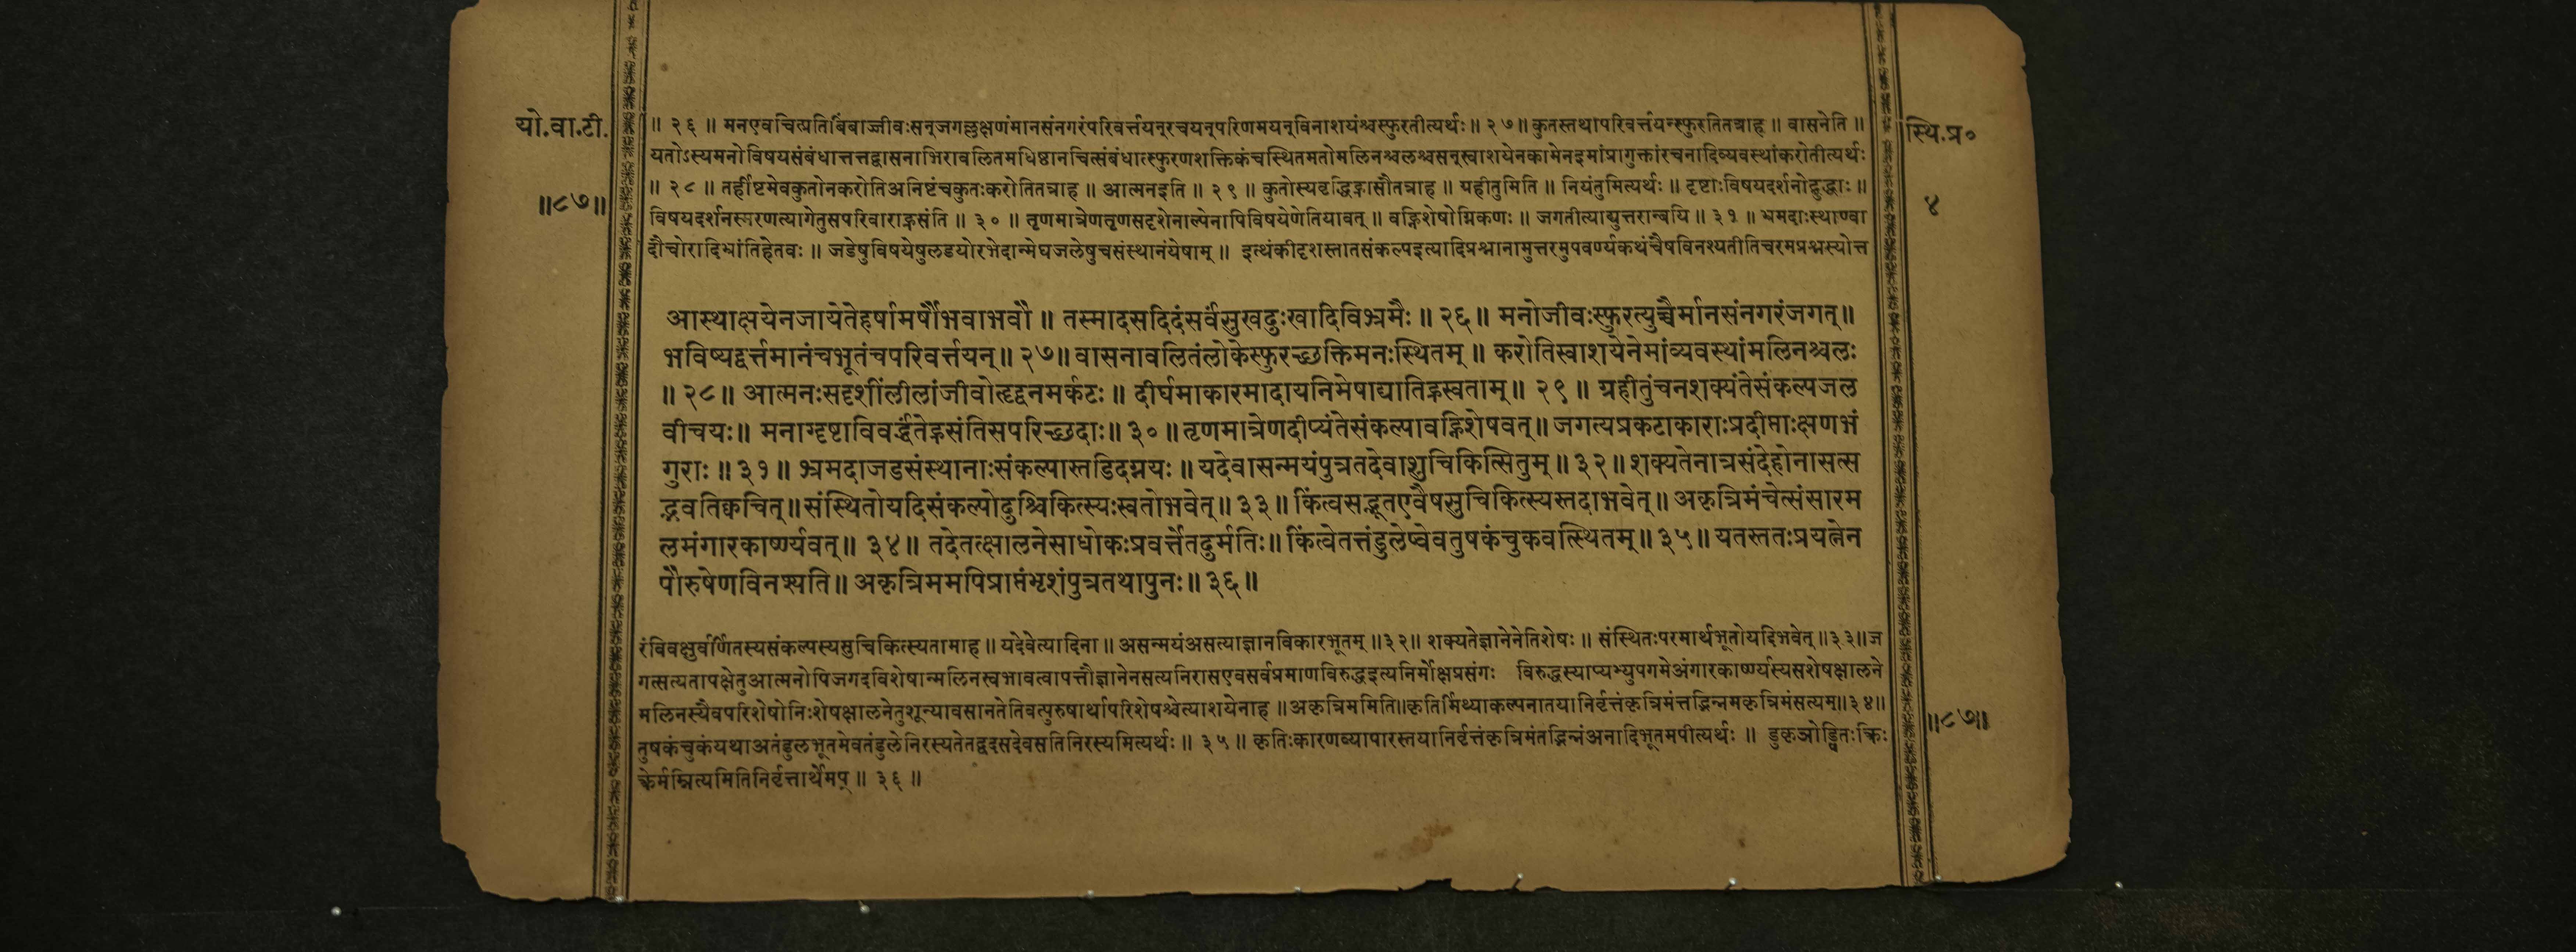 यो.वा.टी.
॥८७॥
॥ २६ ॥ मनएवचित्प्रतिबिंबाज्जीवःसन्जगल्लक्षणंमानसंनगरंपरिवर्त्तयन्रचयन्परिणमयन्विनाशयंश्चस्फुरतीत्यर्थः॥ २७॥ कुतस्तथापरिवर्त्तयन्स्फुरतितत्राह ॥ वासनेति ॥
यतोऽस्यमनोविषयसंबंधात्तत्तद्वासनाभिरावलितमधिष्ठानचित्संबंधात्स्फुरणशक्तिकंचस्थितमतोमलिनश्चलश्चसन्स्वाशयेनकामेनइमांप्रागुक्तांरचनादिव्यवस्थांकरोतीत्यर्थः
॥ २८ ॥ तर्हीष्टमेवकुतोनकरोतिअनिष्टंचकुतःकरोतितत्राह ॥ आत्मनइति ॥ २९ ॥ कुतोस्यवृद्धिह्रासौतत्राह ॥ ग्रहीतुमिति ॥ नियंतुमित्यर्थः ॥ दृष्टाःविषयदर्शनोद्बुद्धाः ॥
विषयदर्शनस्मरणत्यागेतुसपरिवाराह्रसंति ॥ ३० ॥ तृणमात्रेणतृणसदृशेनाल्पेनापिविषयेणेतियावत् ॥ वह्निशेषोग्निकणः ॥ जगतीत्याद्युत्तरान्वयि ॥ ३१ ॥ भ्रमदाःस्थाण्वा
दौचोरादिभ्रांतिहेतवः ॥ जडेषुविषयेषुलडयोरभेदान्मेघजलेषुचसंस्थानंयेषाम् ॥ इत्थंकीदृशस्तातसंकल्पइत्यादिप्रश्नानामुत्तरमुपवर्ण्यकथंचैषविनश्यतीतिचरमप्रश्नस्योत्त
आस्थाक्षयेनजायेतेहर्षामर्षौभवाभवौ ॥ तस्मादसदिदंसर्वंसुखदुःखादिविभ्रमैः ॥ २६॥ मनोजीवःस्फुरत्युच्चैर्मानसंनगरंजगत्॥
भविष्यद्वर्त्तमानंचभूतंचपरिवर्त्तयन्॥ २७॥ वासनावलितंलोकेस्फुरच्छक्तिमनःस्थितम् ॥ करोतिस्वाशयेनेमांव्यवस्थांमलिनश्चलः
॥ २८॥ आत्मनःसदृशींलीलांजीवोत्हृद्वनमर्कटः ॥ दीर्घमाकारमादायनिमेषाद्यातिह्रस्वताम्॥ २९ ॥ ग्रहीतुंचनशक्यंतेसंकल्पजल
वीचयः॥ मनाग्दृष्टाविवर्द्धंतेह्रसंतिसपरिच्छदाः॥ ३० ॥ तृणमात्रेणदीप्यंतेसंकल्पावह्निशेषवत्॥ जगत्यप्रकटाकाराःप्रदीप्ताःक्षणभं
गुराः ॥ ३१ ॥ भ्रमदाजडसंस्थानाःसंकल्पास्तडिदग्नयः ॥ यदेवासन्मयंपुत्रतदेवाशुचिकित्सितुम् ॥ ३२॥ शक्यतेनात्रसंदेहोनासत्स
द्भवतिक्वचित्॥संस्थितोयदिसंकल्पोदुश्चिकित्स्यःस्वतोभवेत्॥ ३३॥ किंत्वसद्भूतएवैषसुचिकित्स्यस्तदाभवेत्॥ अकृत्रिमंचेत्संसारम
लमंगारकार्ष्ण्यवत्॥ ३४॥ तदेतत्क्षालनेसाधोकःप्रवर्त्तेतदुर्मतिः॥ किंत्वेतत्तंडुलेष्वेवतुषकंचुकवत्स्थितम्॥ ३५॥ यतस्ततःप्रयत्नेन
पौरुषेणविनश्यति॥ अकृत्रिममपिप्राप्तंभृशंपुत्रतथापुनः॥ ३६॥
रंविवक्षुर्वर्णितस्यसंकल्पस्यसुचिकित्स्यतामाह ॥ यदेवेत्यादिना ॥ असन्मयंअसत्याज्ञानविकारभूतम् ॥३२॥ शक्यतेज्ञानेनेतिशेषः ॥ संस्थितःपरमार्थभूतोयदिभवेत् ॥३३॥ज
गत्सत्यतापक्षेतुआत्मनोपिजगदविशेषान्मलिनस्वभावत्वापत्तौज्ञानेनसत्यनिरासएवसर्वप्रमाणविरुद्धइत्यनिर्मोक्षप्रसंगः विरुद्धस्याप्यभ्युपगमेअंगारकार्ष्ण्यस्यसशेषक्षालने
मलिनस्यैवपरिशेषोनिःशेषक्षालनेतुशून्यावसानतेतिवत्पुरुषार्थापरिशेषश्चेत्याशयेनाह ॥अकृत्रिममिति॥कृतिर्मिथ्याकल्पनातयानिर्वृत्तंकृत्रिमंतद्भिन्नमकृत्रिमंसत्यम्॥३४॥
तुषकंचुकंयथाअतंडुलभूतमेवतंडुलेनिरस्यतेतद्वदसदेवसतिनिरस्यमित्यर्थः ॥ ३५ ॥ कृतिःकारणव्यापारस्तयानिर्वृत्तंकृत्रिमंतद्भिन्नंअनादिभूतमपीत्यर्थः ॥ डुकृञोड्वितःक्त्रिः
क्त्रेर्मम्नित्यमितिनिर्वृत्तार्थेमप् ॥ ३६ ॥
स्थि.प्र०
४
॥८७॥